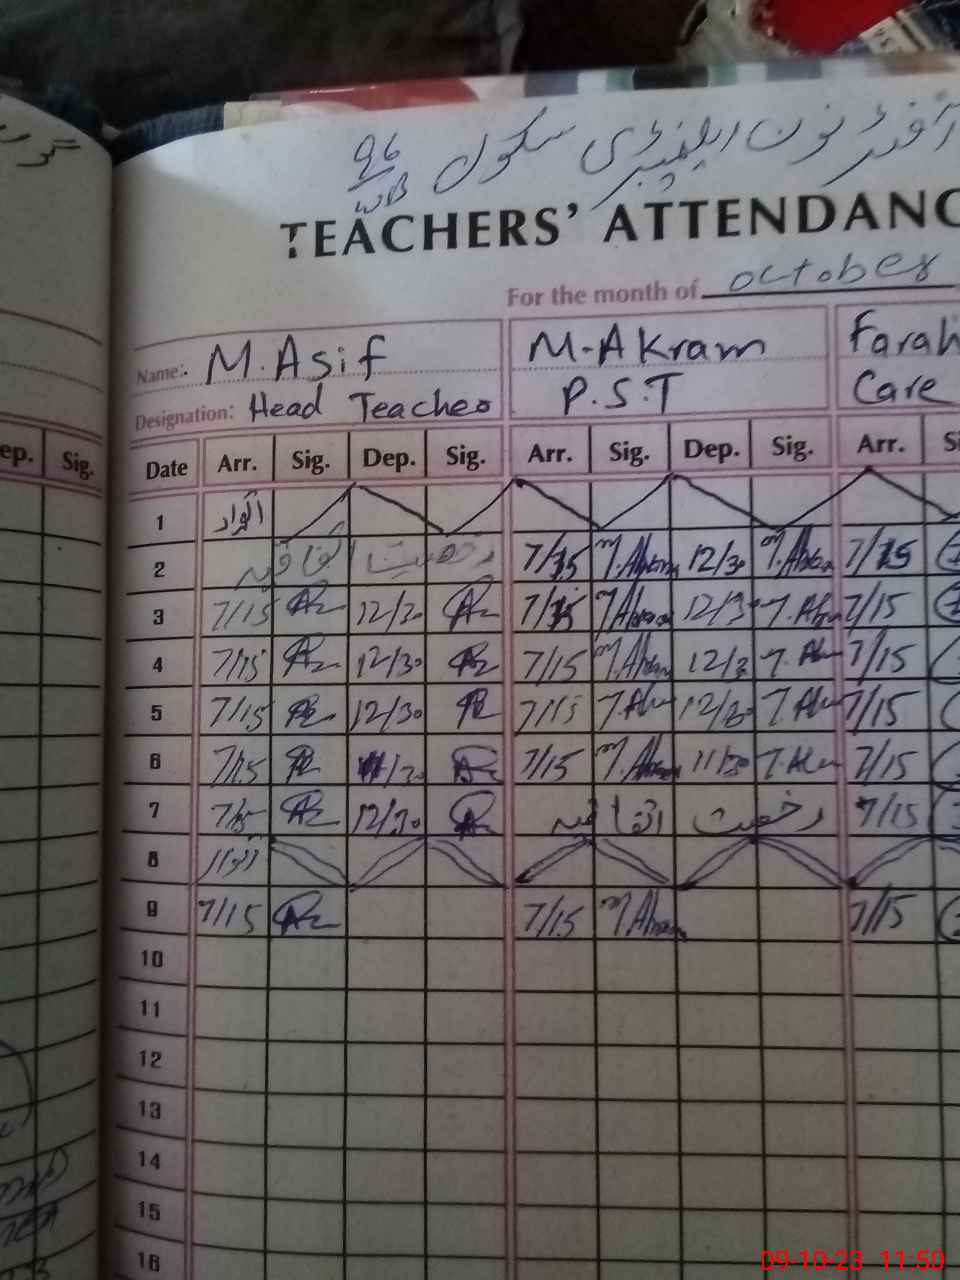 سکول
96
WB
TEACHERS' ATTENDANC
For the month of October
Name:- M. Asif M-Akram Farah
Designation: Head Teacher P.S.T Care
ep. Sig. Date Arr. Sig. Dep. Sig. Arr. Sig. Dep. Sig. Arr. Si
1 اتوار
2 رخصت اتفاقیہ 7/15 M.Akram 12/30 M.Akram 7/15
3 7/15 12/30 7/15 M.Akram 12/30 M.Akram 7/15
4 7/15 12/30 7/15 M.Akram 12/3 M.Akram 7/15
5 7/15 12/30 7/15 M.Akram 12/30 M.Akram 7/15
6 7/15 11/30 7/15 M.Akram 11/30 M.Akram 7/15
7 7/15 12/30 رخصت اتفاقیہ 7/15
8 اتوار
9 7/15 7/15 M.Akram 7/15
10
11
12
13
14
15
16
09-10-23 11:50